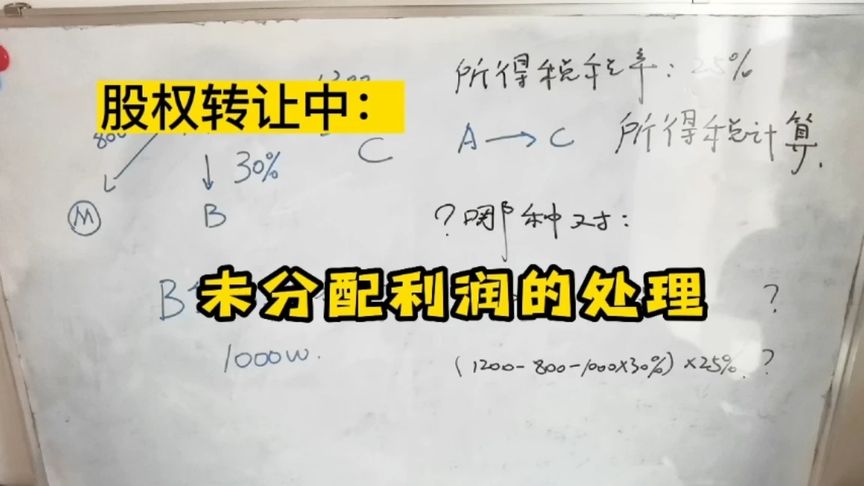 所得税税率：25%
股权转让中：
800
C
A → C 所得税计算.
30%
Ⓜ
B
？哪种对：
B
未分配利润的处理
？
1000W.
(1200-800-1000×30%)×25%.？